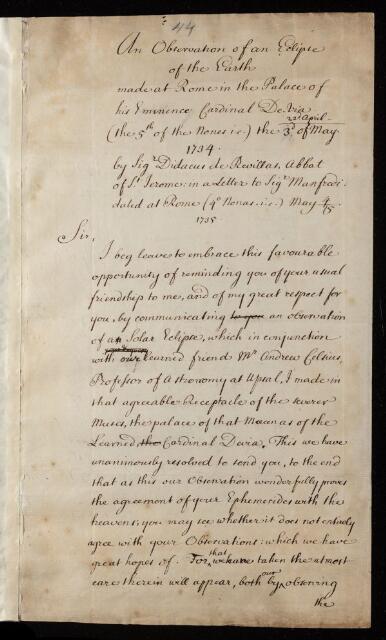 44
An Observation of an Eclipse
of the Earth
made at Rome in the Palace of
his Eminence Cardinal De Via
22d April
(the 5th of the Nones i.e.) the 3d of May
1734
by Sigr Didacus de Revillas, Abbat
of St Jerome: in a Letter to Sigr Manfredi.
dated at Rome (4o Nonas. i.e.) May 4/5.
1735
Sir,
I beg leave to embrace this favourable
opportunity of reminding you of your usual
friendship to me, and of my great respect for
you, by communicating to you an observation
of an Solar Eclipse, which in conjunction
with our learned friend Mr Andrew Celsius,
Professor of Astronomy at Upsal, I made in
that agreeable Receptacle of the severer
Muses, the palace of that Mæcenas of the
Learned, the Cardinal Davia. This we have
unanimously resolved to send you, to the end
that as this our Observation wonderfully proves
the agreement of your Ephemerides with the
heavens; you may see whether it does not entirely
agree with your Observations: which we have
great hopes of. For, that we have taken the utmost
care therein will appear, both by our observing
the